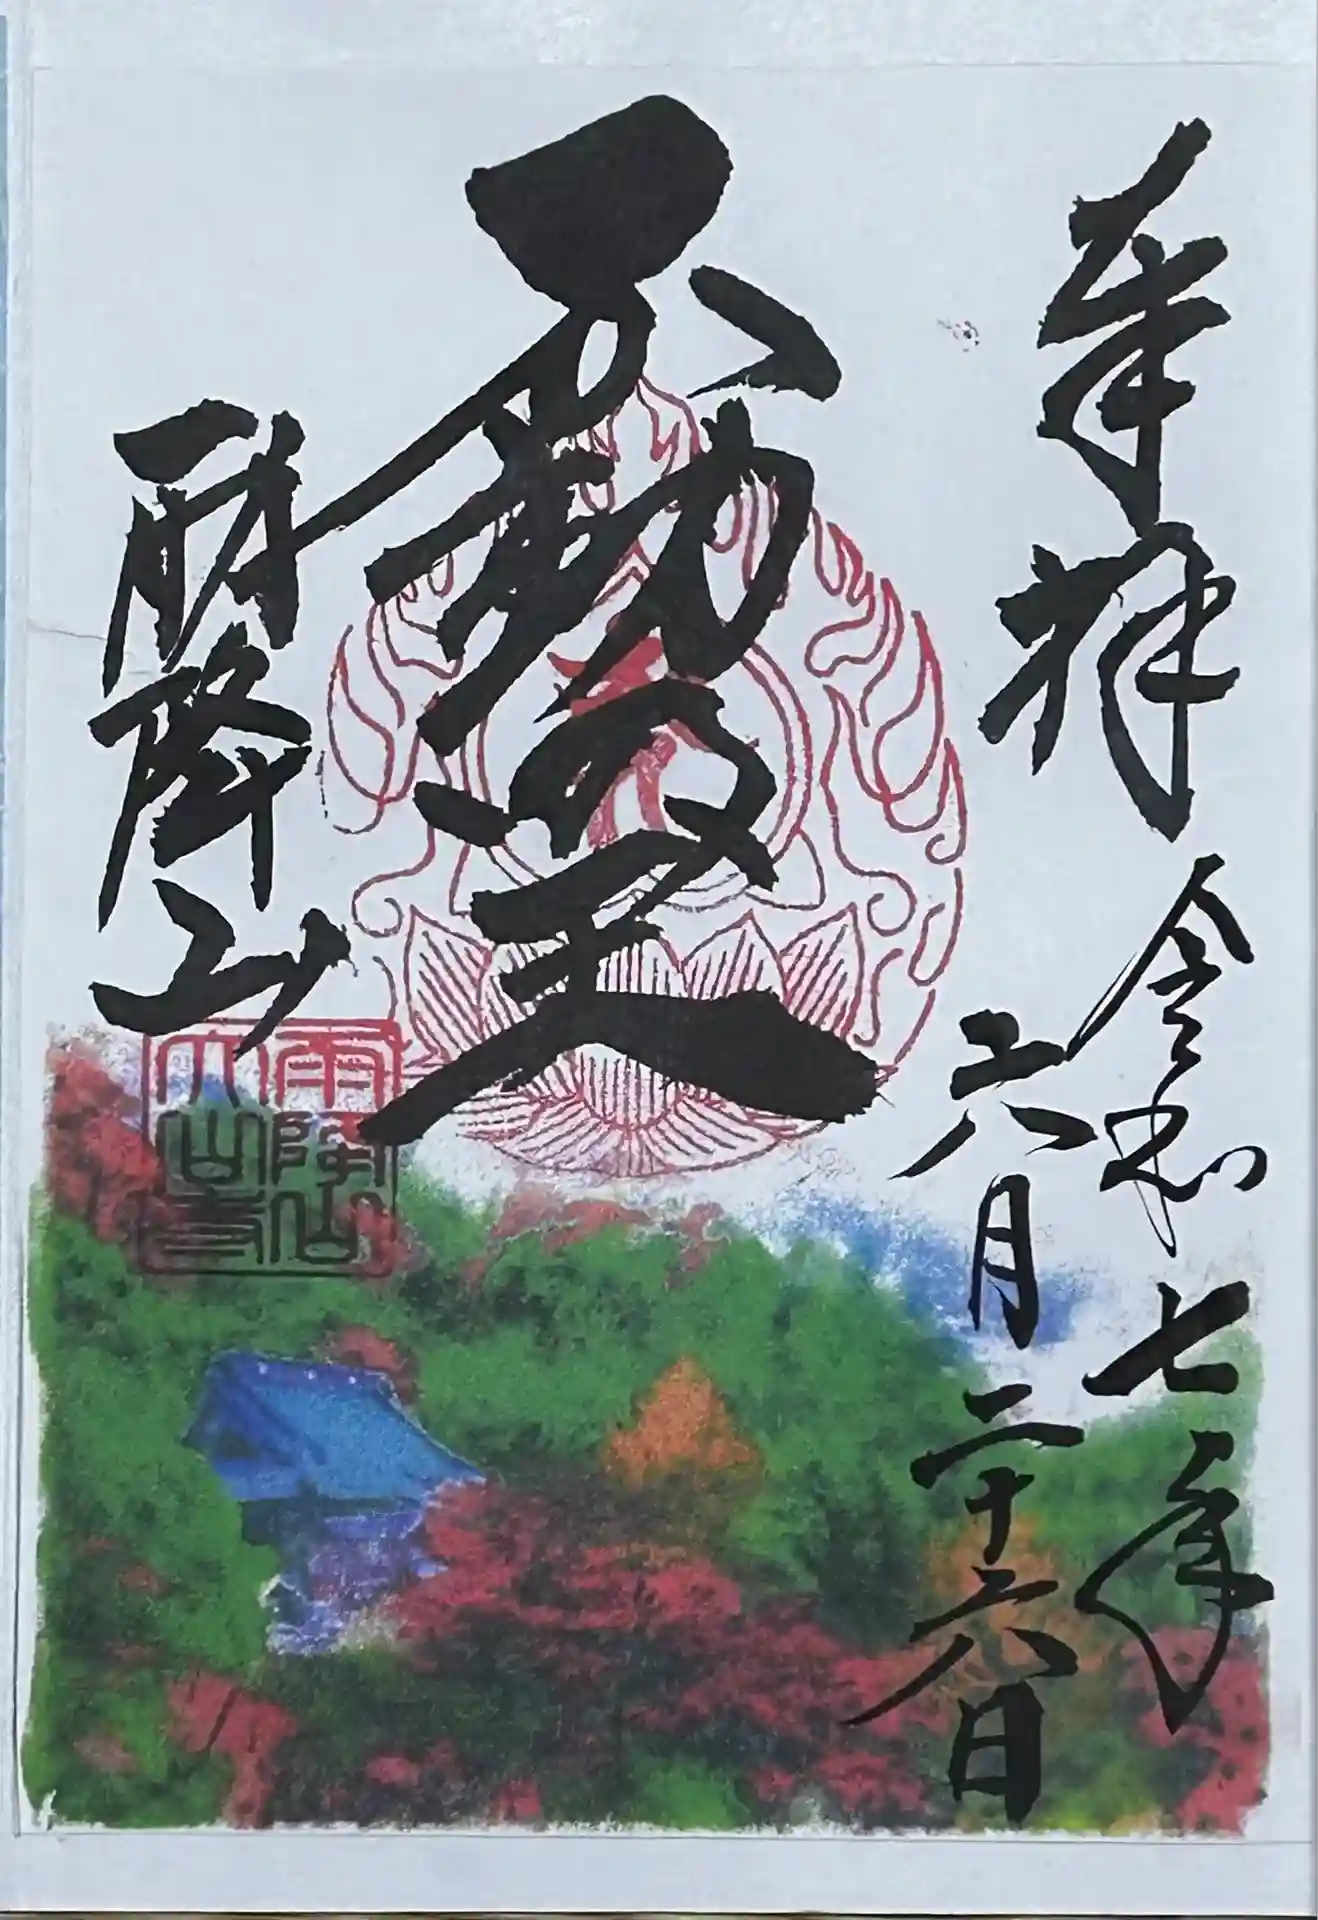 奉拝
令和七年
六月二十六日
不動
雨降山
雨降山
大山寺